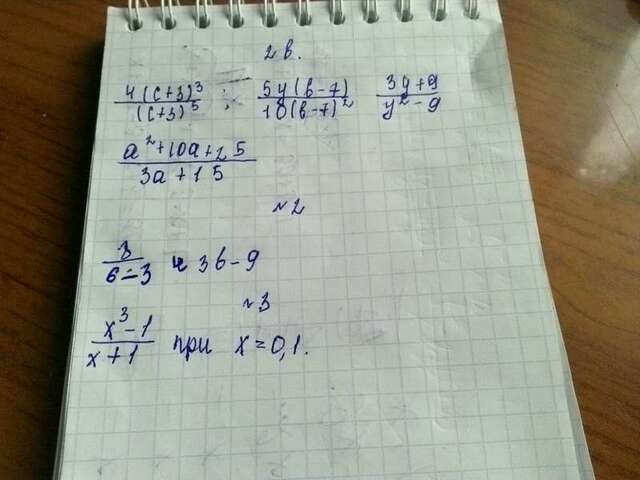 2 в.
4(c+3)³/(c+3)⁵ ; 5y(в-7)/10(в-7)² 3y+9/y²-9
a²+10a+25/3a+15
№2
3/в-3 и 3в-9
№3
x³-1/x+1 при x=0,1.